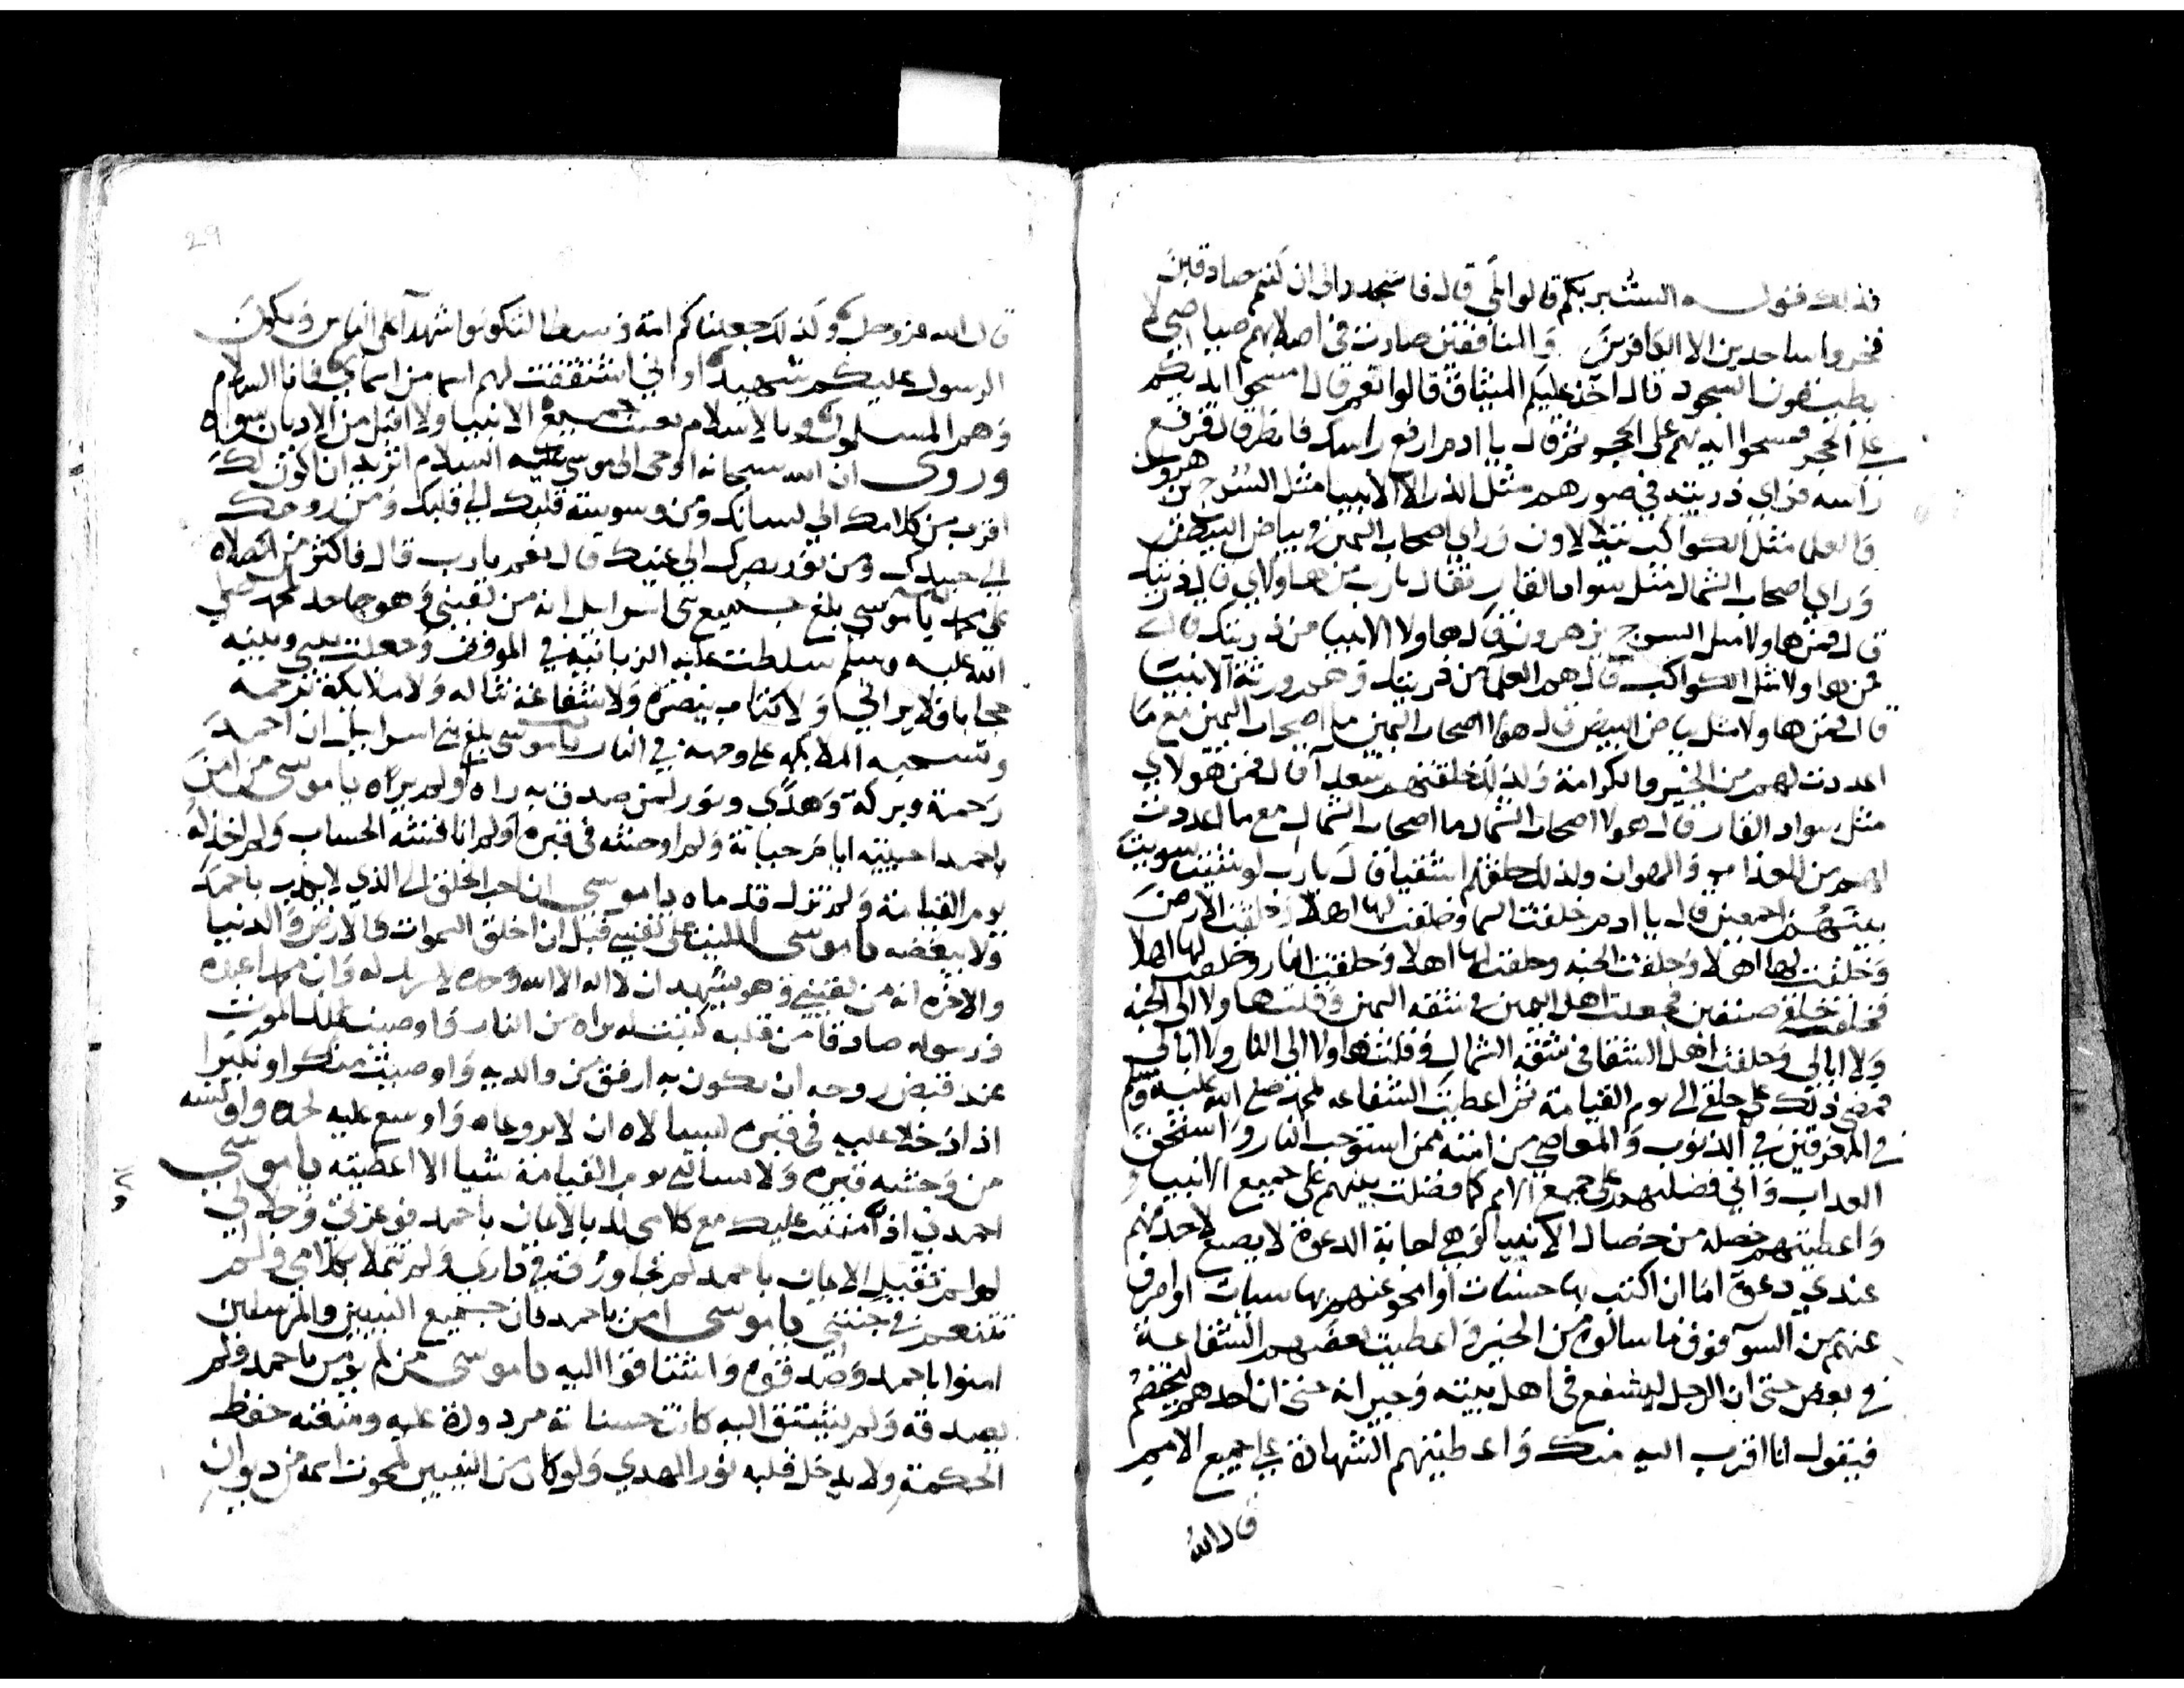 فذلك قوله الست بربكم قالوا بلى قال فاسجدوا لي ان كنتم صادقين
فخروا ساجدين الا الكافرين والمنافقين صارت في اصلابهم صياصي لا
يطيقون السجود قال آخذ عليكم الميثاق قالوا نعم قال امسحوا ايديكم
على الحجر فمسحوا ايديهم على الحجر ثم قال يا ادم ارفع راسك فانظر قال فرفع
راسه فراي ذريته في صورهم مثل الذر الا الانبيا مثل السرج يزهرون
والعلما مثل الكواكب يتلالاون وراي اصحاب اليمين في بياض البيض
وراي اصحاب الشمال مثل سواد القار فقال يارب من هاولاي قال ذريتك
قال فمن هاولا مثل السرج يزهرون قال هاولا الانبيا من ذريتك قال
فمن هاولا مثل الكواكب قال هم العلما من ذريتك وهم ورثة الانبيا
قال فمن هاولا مثل بياض البيض قال هولا اصحاب اليمين ما اصحاب اليمين مع ما
اعددت لهم من الخير والكرامة ولذلك خلقتهم سعدا قال فمن هولاي
مثل سواد القار قال هولا اصحاب الشمال ما اصحاب الشمال مع ما اعددت
لهم من العذاب والهوان ولذلك خلقتهم اشقيا قال يارب لو شئت سويت
بينهم اجمعين قال يا ادم خلقت السما وخلقت لها اهلا وخلقت الارض
وخلقت لها اهلا وخلقت الجنه وخلقت لها اهلا وخلقت النار وخلقت لها اهلا
فخلقت خلقي صنفين فجعلت اهل اليمين في شقه اليمن وقلت هاولا الى الجنه
ولا ابالي وخلقت اهل الشقا في شقه الشمال وقلت هاولا الى النار ولا ابالي
فمضى ذلك على خلقي الى يوم القيامة ثم اعطيت الشفاعه لمحمد صلى الله عليه وسلم
في المغرقين في الذنوب والمعاصي من امته ممن استوجب النار واستحق
العذاب واني فضلتهم على جميع الامم كما فضلت نبيهم على جميع الانبيا و
واعطيتهم خصله من خصال الانبيا وهي اجابة الدعوة لا يضيع لاحد منهم
عندي دعوة اما ان اكتب بها حسنات او امحو عنهم بها سيات او اصرف
عنهم من السوء فوق ما سالوه من الخير واعطيت بعضهم الشفاعة
في بعض حتى ان الرجل ليشفع في اهل بيته وجيرانه حتى ان احدهم ليخصم
فيقول انا اقرب اليه منك واعطيتهم الشهادة على جميع الامم
قال الله
29
قال الله عز وجل وكذلك جعلناكم امة وسطا لتكونوا شهدآ على الناس ويكون
الرسول عليكم شهيدا واني اشتققت لهم اسما من اسماي فانا السلام
وهم المسلمون وبالاسلام بعثت جميع الانبيا ولا اقبل من الاديان سواه
وروى ان الله سبحانه اوحى الى موسى عليه السلام اتريد ان اكون لك
اقرب من كلامك الي لسانك ومن وسوسة قلبك الي قلبك ومن روحك
الي جسدك ومن نور بصرك الى عينك قال نعم يارب قال فاكثر من الصلاه
على محمد ياموسى بلغ جميع بني اسرايل انه من لقيني وهو جاحد لمحمد صلى
الله عليه وسلم سلطت عليه الزبانية في الموقف وجعلت بيني وبينه
حجابا فلا يراني ولا كتاب ينصره ولا شفاعة تناله ولا ملايكة ترحمه
وتسحبه الملايكه على وجهه في النار ياموسى بلغ بني اسرايل ان احمد
رحمة وبركة وهدى ونور لمن صدق به راه او لم يراه يا موسى من امن
باحمد احببته ايام حياته ولم اوحشه في قبره ولم اناقشه الحساب ولم اخذله
يوم القيامة ولم تزل قدماه ياموسى ان احب الخلق الي الذي لا يكذب باحمد
ولا يبغضه ياموسى اليت على نفسي قبل ان اخلق السموات والارض والدنيا
والاخره انه من لقيني وهو يشهد ان لا اله الا الله وحده لا شريك له وان محمدا عبده
ورسوله صادقا من قلبه كتبت له براه من النار واوصيت ملك الموت
عند قبض روحه ان يكون به ارفق من والديه واوصيت منكرا ونكيرا
اذا دخلا عليه في قبره ليسالاه ان لا يروعاه واوسع عليه لحده واونسه
من وحشة قبره ولا يسالني يوم القيامة شيا الا اعطيته ياموسى
احمدني اذ مننت عليك مع كلامي لك بالايمان باحمد فوعزتي وجلالي
لو لم تقبل الايمان باحمد لم تجاورني في داري ولم تتملا بكلامي ولم
تتنعم في جنتي ياموسى امن باحمد فان جميع النبيين والمرسلين
امنوا باحمد وصدقوه واشتاقوا اليه ياموسى من لم يومن باحمد ولم
يصدقه ولم يشتق اليه كانت حسناته مردودة عليه ومنعته حفظ
الحكمة ولا يدخل قلبه نور الهدى ولو كان من النبيين لمحوت اسمه من ديوان